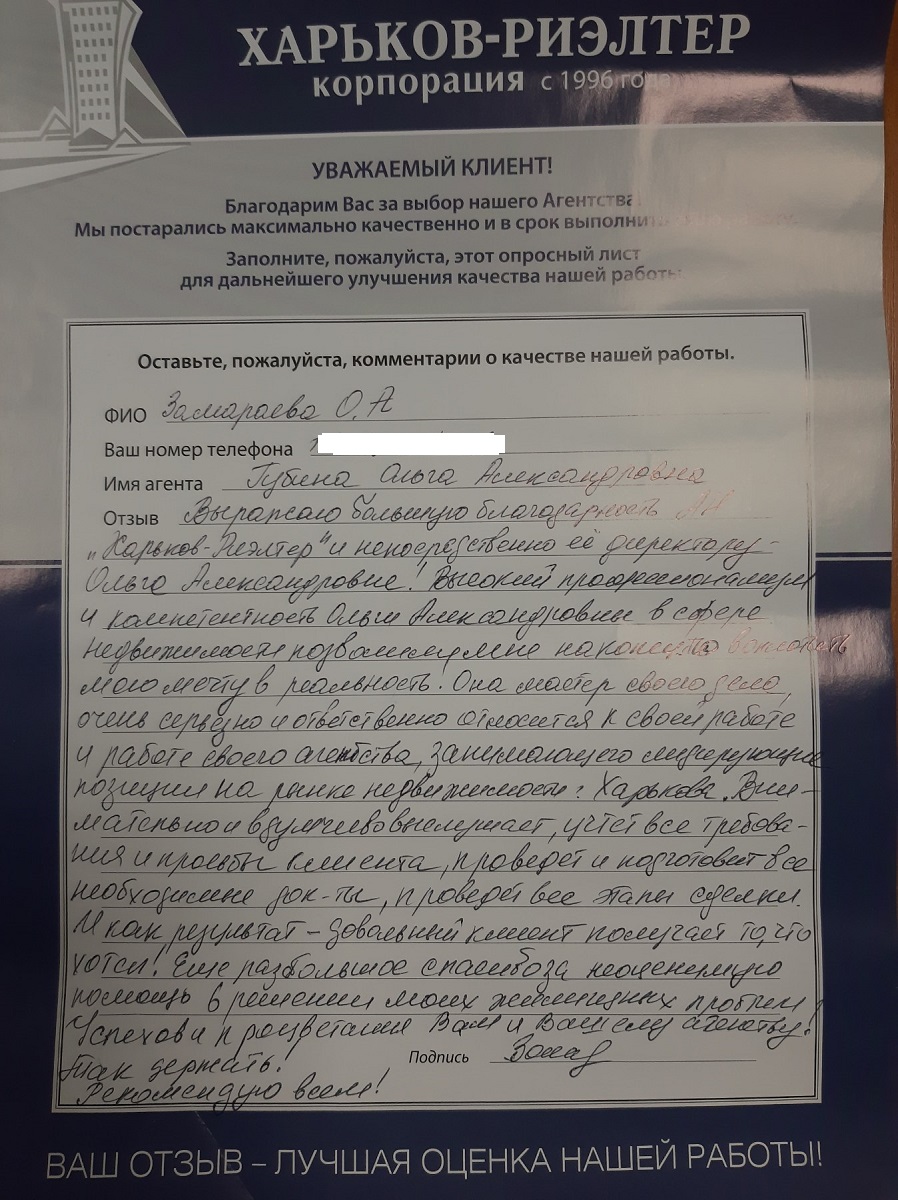 ХАРЬКОВ-РИЭЛТЕР
корпорация с 1996 года
УВАЖАЕМЫЙ КЛИЕНТ!
Благодарим Вас за выбор нашего Агентства
Мы постарались максимально качественно и в срок выполнить
Заполните, пожалуйста, этот опросный лист
для дальнейшего улучшения качества нашей работы
Оставьте, пожалуйста, комментарии о качестве нашей работы.
ФИО Замараева О.А
Ваш номер телефона
Имя агента Губина Ольга Александровна
Отзыв Выражаю большую благодарность АН
„Харьков-Риэлтер" и непосредственно её директору -
Ольге Александровне! Высокий профессионализм
и компетентность Ольги Александровны в сфере
недвижимости позволили мне наконец-то воплотить
мою мечту в реальность! Она мастер своего дела,
очень серьёзно и ответственно относится к своей работе
и работе своего агентства, занимающего лидирующие
позиции на рынке недвижимости г. Харькова. Вни-
мательно и вдумчиво выслушает, учтёт все требова-
ния и просьбы клиента, проведёт и подготовит все
необходимые док-ты, проведёт все этапы сделки.
И как результат – довольный клиент получает то, что
хотел! Еще раз большое спасибо за неоценимую
помощь в решении моих жилищных проблем!
Успехов и процветания Вам и Вашему агентству!
Так держать! Подпись
Рекомендую всем!
ВАШ ОТЗЫВ – ЛУЧШАЯ ОЦЕНКА НАШЕЙ РАБОТЫ!